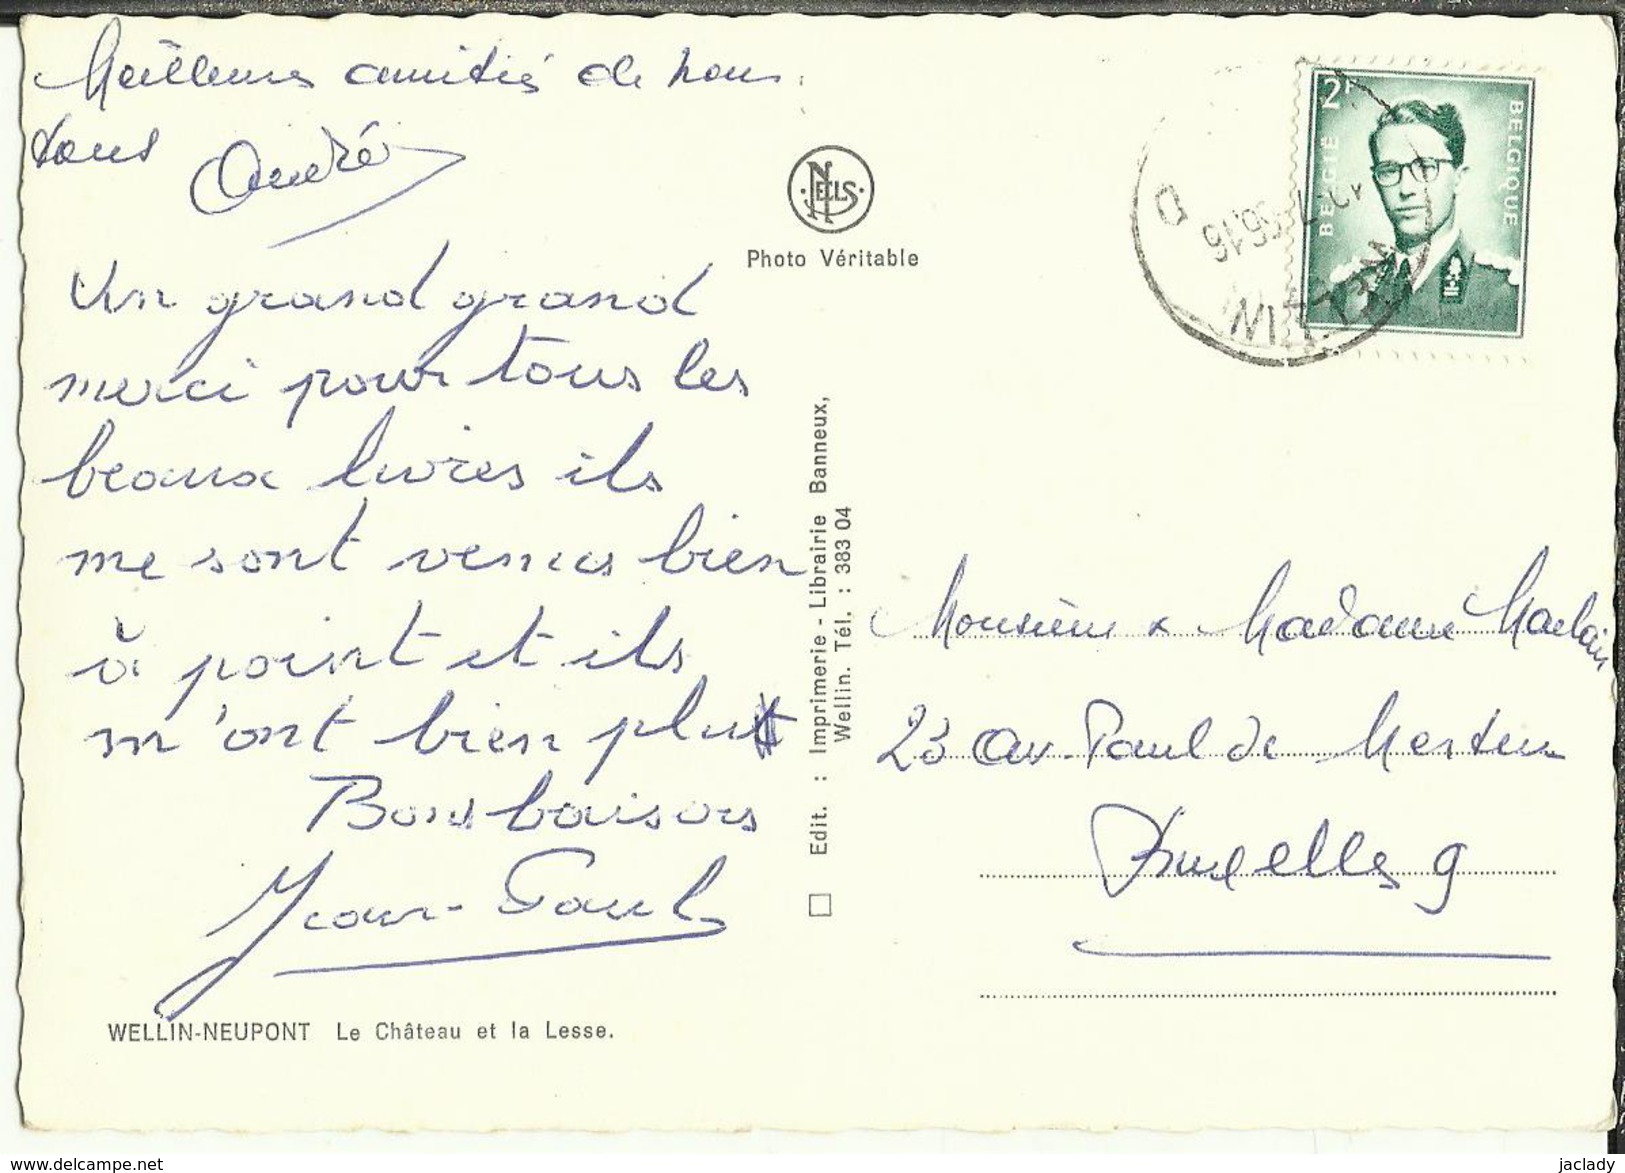 Meilleures amitiés de nous
tous André
Un grand grand
merci pour tous les
beaux livres ils
me sont venus bien
à point et ils
m'ont bien plu
Bons baisors
Jean-Paul
WELLIN-NEUPONT Le Château et la Lesse.
NELS
Photo Véritable
Edit. : Imprimerie - Librairie Banneux,
Wellin. Tél. : 383 04
2F
BELGIË
BELGIQUE
WELLIN
D
Monsieur & Madame
23 av. Paul de Merten
Bruxelles 9
delcampe.net
jaclady